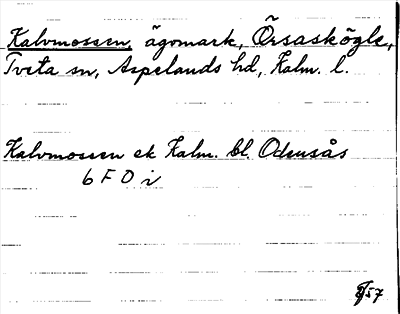 Kalvmossen, ägomark, Örsaskögle,
Tveta sn, Aspelands hd, Kalm. l.
Kalvmossen ek Kalm. bl. Odensås
6 F 0 i
57